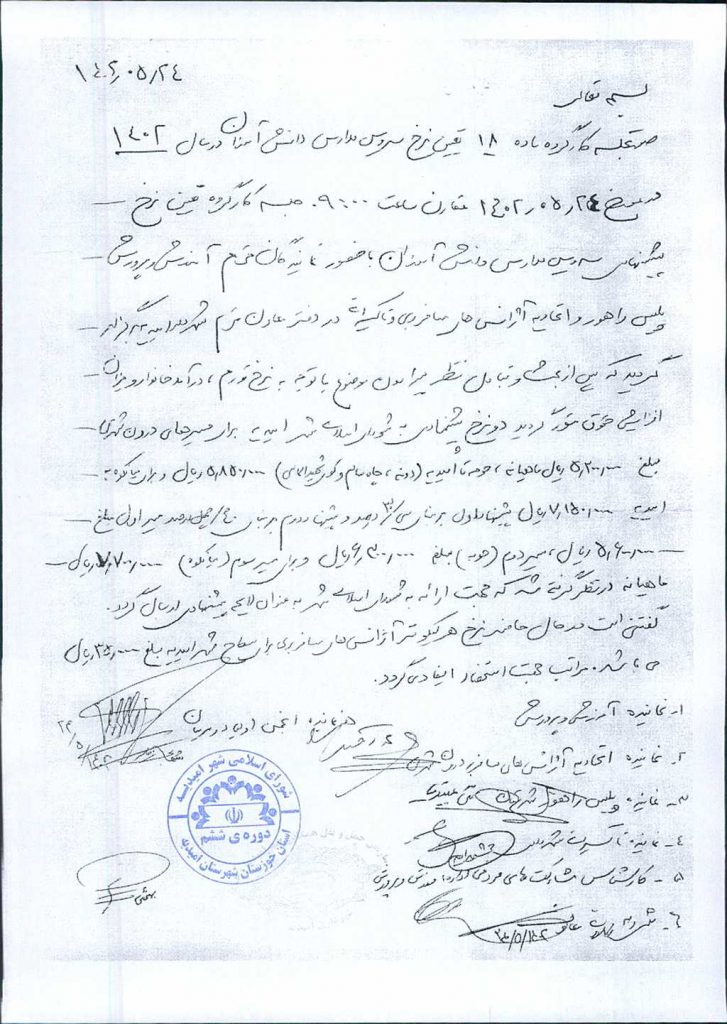 ۱۴۰۲/۰۵/۲۴
بسمه تعالی
صورتجلسه کارگروه ماده ۱۸ تعیین نرخ سرویس مدارس دانش آموزان در سال ۱۴۰۲
در مورخ ۱۴۰۲/۰۵/۲۴ مقارن ساعت ۰۹:۰۰ جلسه کارگروه تعیین نرخ
پیشنهادی سرویس مدارس دانش آموزان با حضور نمایندگان محترم آموزش و پرورش
پلیس راهور و اتحادیه آژانس های مسافربری و تاکسیرانی در دفتر معاون محترم شهردار امیدیه برگزار
گردید که پس از بحث و تبادل نظر پیرامون موضوع با توجه به نرخ تورم، درآمد خانوار و میزان
افزایش حقوق مقرر گردید دو نرخ پیشنهادی به شورای اسلامی شهر امیدیه برای مسیرهای درون شهری
مبلغ ۵,۲۰۰,۰۰۰ ریال ماهیانه، حومه تا امیدیه ۵,۸۵۰,۰۰۰ ریال و برای میانکوه به
امیدیه ۷,۱۵۰,۰۰۰ ریال پیشنهاد اول بر مبنای سی/۳۰ درصد و پیشنهاد دوم بر مبنای ۴۰/چهل درصد مسیر اول مبلغ
۵,۶۰۰,۰۰۰ ریال، مسیر دوم (حومه) مبلغ ۶,۳۰۰,۰۰۰ ریال و برای مسیر سوم (میانکوه) ۷,۷۰۰,۰۰۰ ریال
ماهیانه در نظر گرفته شد که جهت ارائه به شورای اسلامی شهر به عنوان لایحه پیشنهادی ارسال گردد.
گفتنی است در حال حاضر نرخ هر کیلومتر آژانس های مسافربری برای سطح شهر امیدیه مبلغ ۳۵,۰۰۰ ریال
می باشد. مراتب جهت استحضار ایفاد می گردد.
۱- نماینده آموزش و پرورش
هنر نماینده انجمن اولیا و مربیان
۲- نماینده اتحادیه آژانس های مسافربری درون شهری
۳- نماینده پلیس راهور شهرستان
۴- نماینده تاکسیرانی شهرداری
۵- کارشناس مشارکت های مردمی اداره آموزش و پرورش
۶-
شورای اسلامی شهر امیدیه
دوره ی ششم
استان خوزستان شهرستان امیدیه